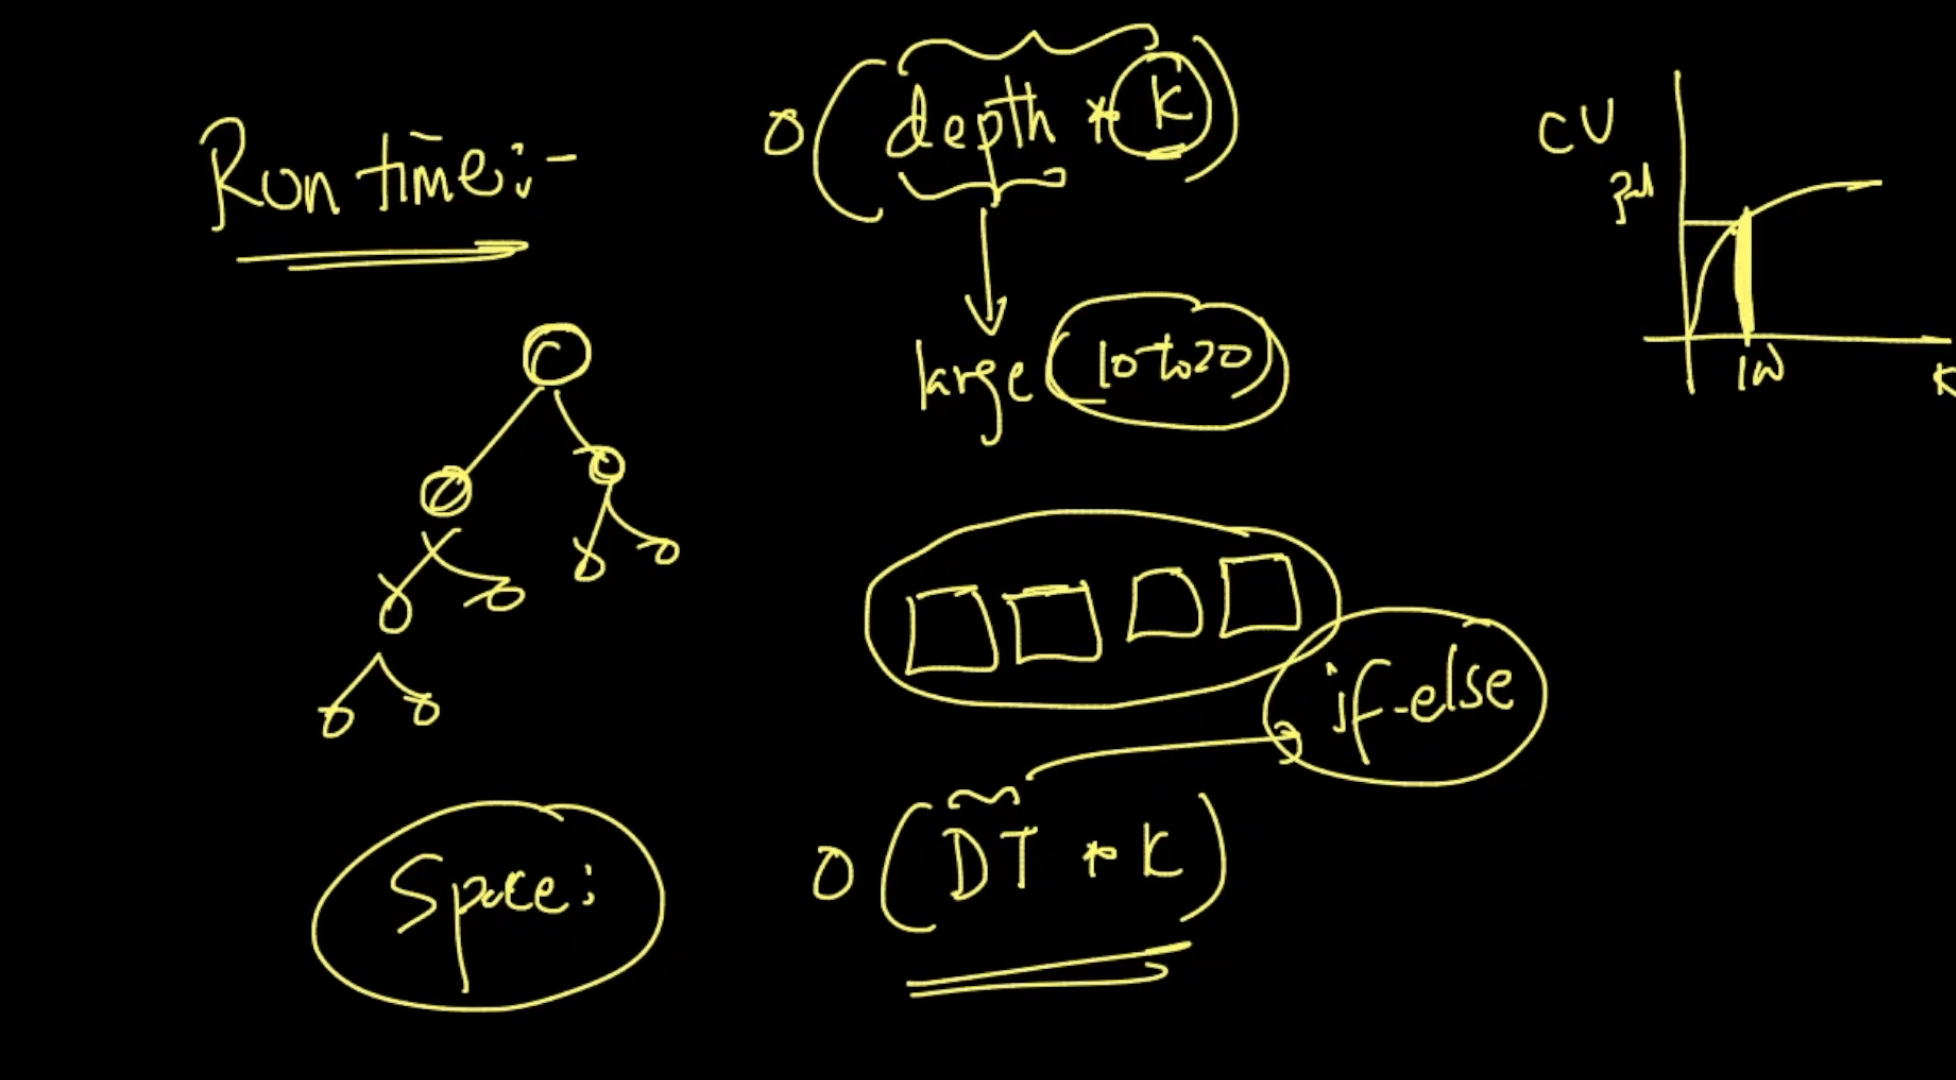 Run time:-
O(depth * K)
large (10 to 20)
if-else
Space:
O(DT * K)
CV
100
K